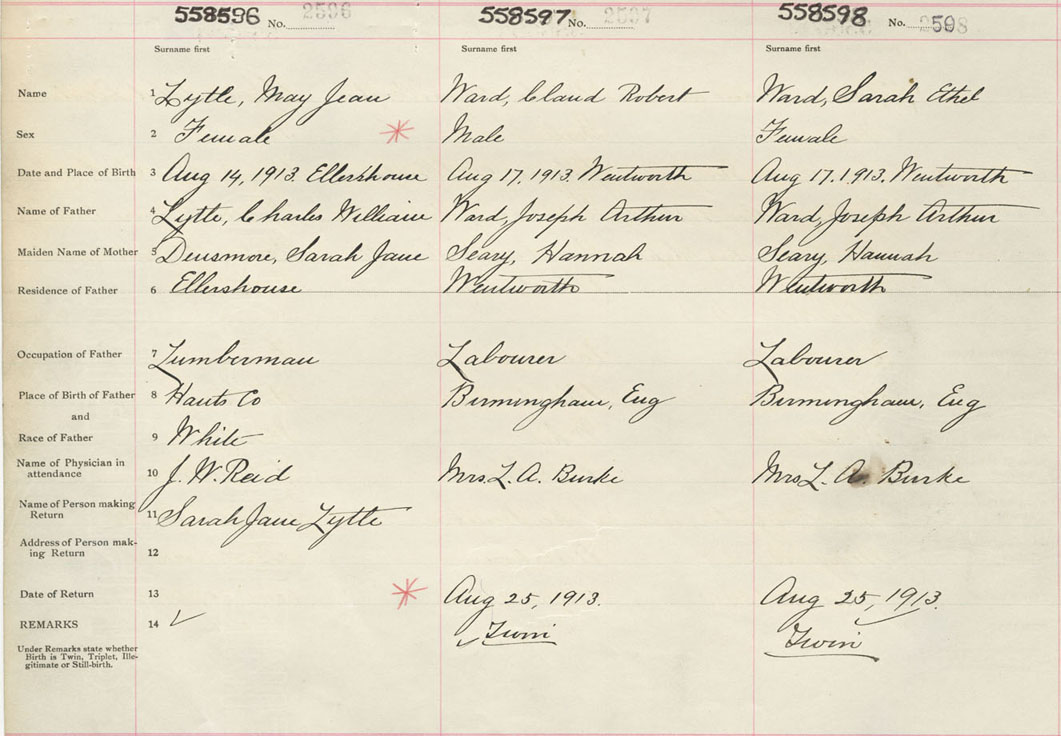 558596 No. 2596 558597 No. 2597 558598 No. 2598
Surname first Surname first Surname first
Name 1 Lytle, May Jean Ward, Claud Robert Ward, Sarah Ethel
Sex 2 Female Male Female
Date and Place of Birth 3 Aug 14, 1913. Ellershouse Aug 17. 1913. Wentworth Aug 17. 1913. Wentworth
Name of Father 4 Lytle, Charles William Ward, Joseph Arthur Ward, Joseph Arthur
Maiden Name of Mother 5 Densmore, Sarah Jane Seary, Hannah Seary, Hannah
Residence of Father 6 Ellershouse Wentworth Wentworth
Occupation of Father 7 Lumberman Labourer Labourer
Place of Birth of Father 8 Hants Co Birmingham, Eng Birmingham, Eng
and
Race of Father 9 White
Name of Physician in
attendance 10 J. W. Reid Mrs. L. A. Burke Mrs L. A. Burke
Name of Person making
Return 11 Sarah Jane Lytle
Address of Person mak-
ing Return 12
Date of Return 13 Aug 25, 1913. Aug 25, 1913.
REMARKS 14 Twin Twin
Under Remarks state whether
Birth is Twin, Triplet, Ille-
gitimate or Still-birth.